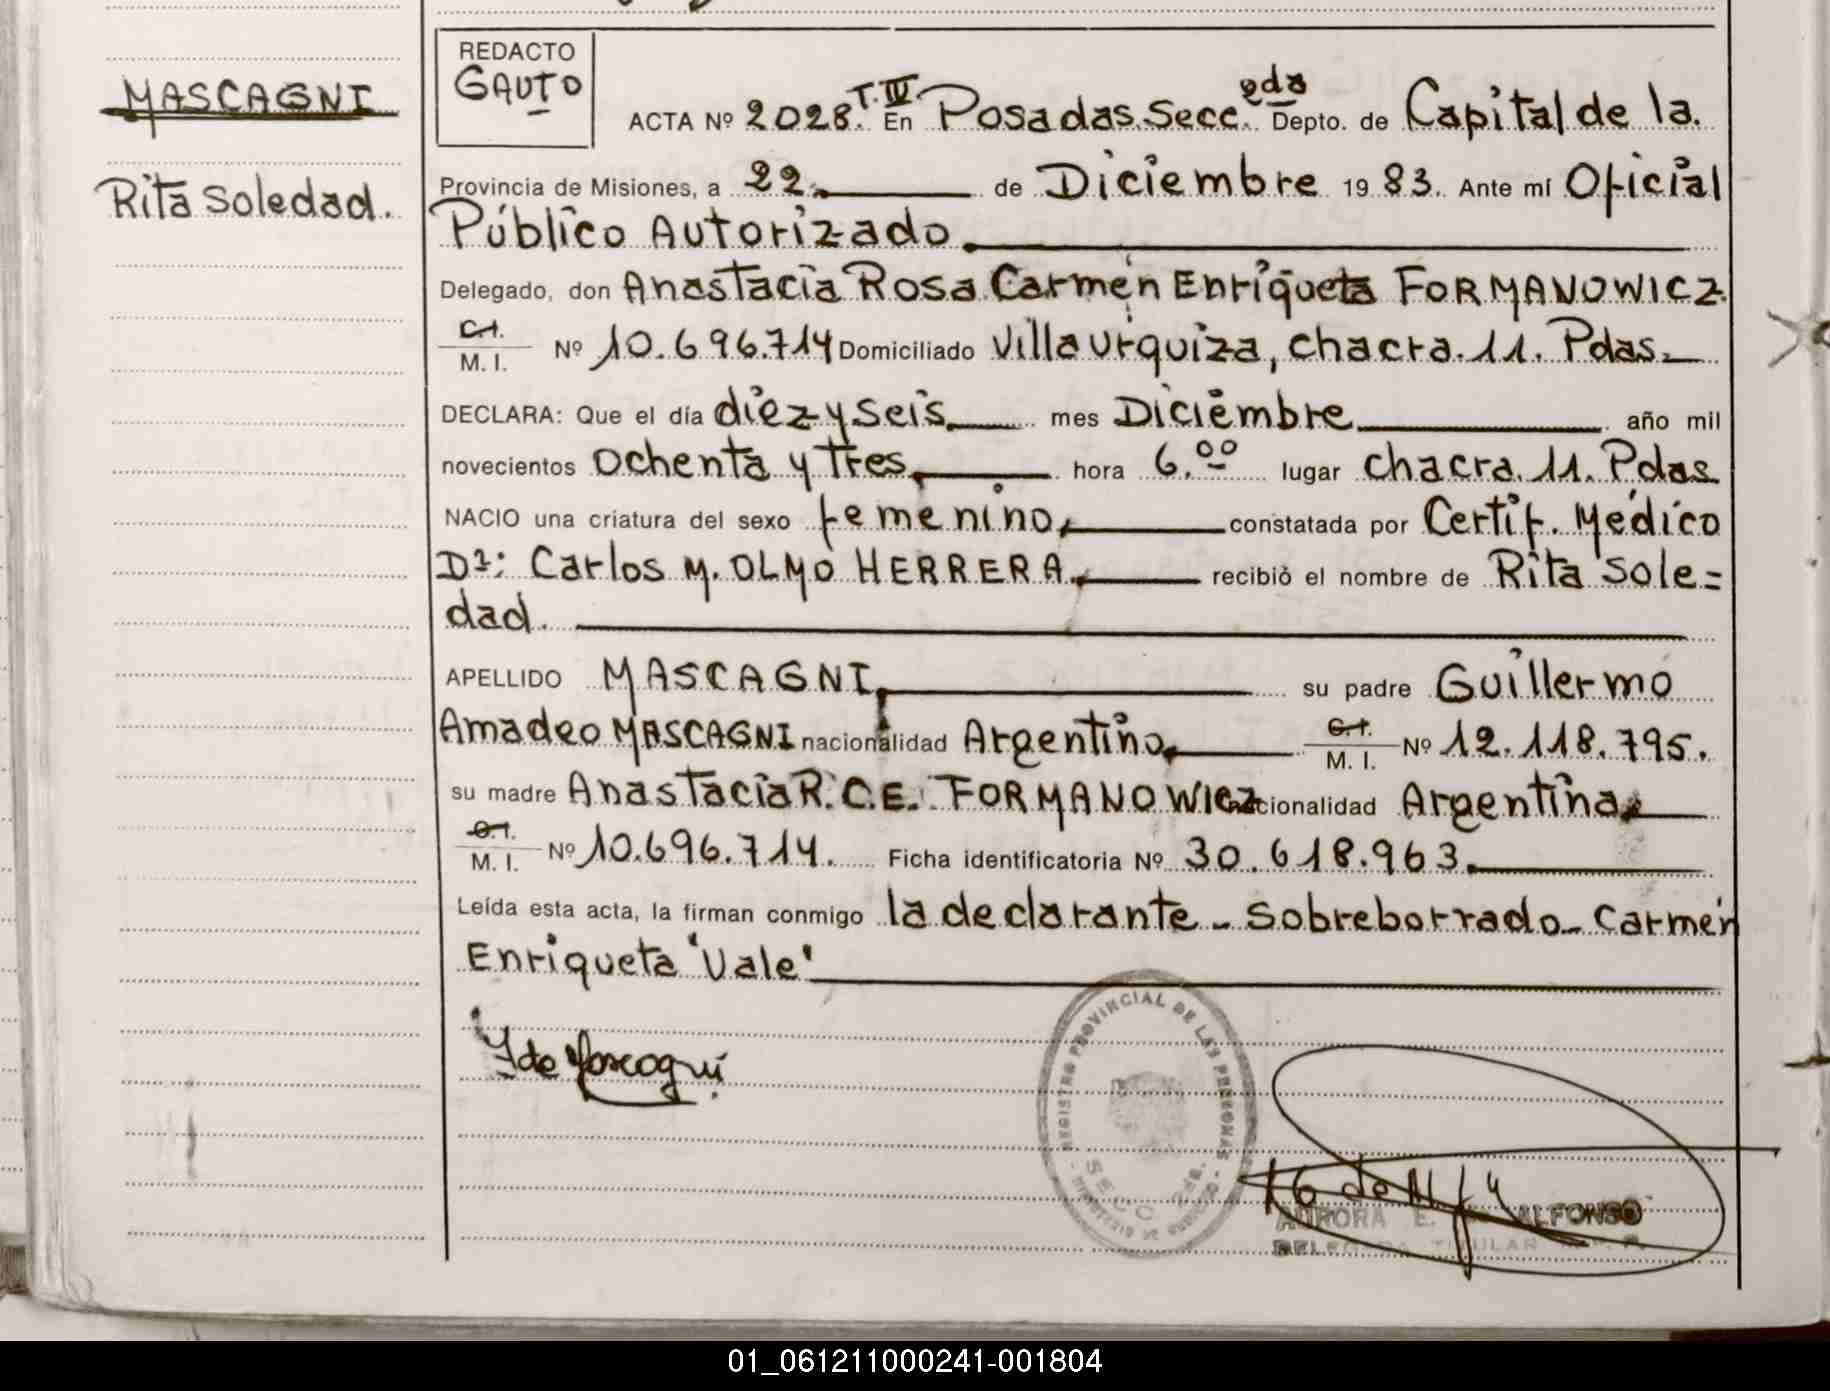 MASCAGNI
Rita Soledad.
REDACTO
GAUTO
ACTA Nº 2028. T. IV En Posadas. Secc. 2da Depto. de Capital de la.
Provincia de Misiones, a 22. de Diciembre 1983. Ante mí Oficial
Público Autorizado.
Delegado, don Anastacia Rosa Carmen Enriqueta FORMANOWICZ
C.I.
M. I. Nº 10.696.714 Domiciliado Villa Urquiza, chacra. 11. Pdas.
DECLARA: Que el día diez y seis. mes Diciembre. año mil
novecientos ochenta y tres, hora 6.00 lugar chacra. 11. Pdas
NACIO una criatura del sexo femenino, constatada por Certif. Médico
Dr: Carlos M. OLMO HERRERA. recibió el nombre de Rita Sole=
dad.
APELLIDO MASCAGNI, su padre Guillermo
Amadeo MASCAGNI nacionalidad Argentino. C.I.
M. I. Nº 12.118.795.
su madre Anastacia R. C. E. FORMANOWICZ nacionalidad Argentina.
C.I.
M. I. Nº 10.696.714. Ficha identificatoria Nº 30.618.963.
Leída esta acta, la firman conmigo la declarante - sobreborrado - Carmen
Enriqueta "Vale"
REGISTRO PROVINCIAL DE LAS PERSONAS
SECC. 2da.
AURORA E. ALFONSO
DELEGADA TITULAR
01_061211000241-001804